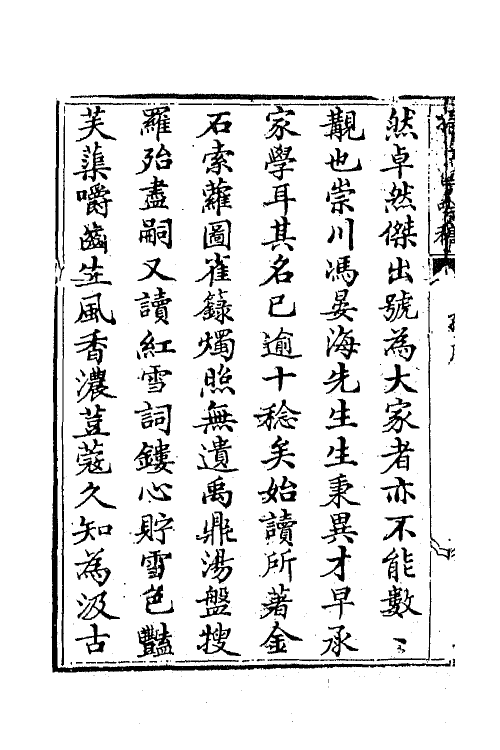 然卓然傑出號為大家者亦不能數〻
覯也崇川馮晏海先生生秉異才早承
家學耳其名已逾十稔矣始讀所著金
石索蘿圖雀籙燭照無遺禹鼎湯盤搜
羅殆盡嗣又讀紅雪詞鏤心貯雪色豔
芙蕖嚼齒生風香濃荳蔻久知為汲古